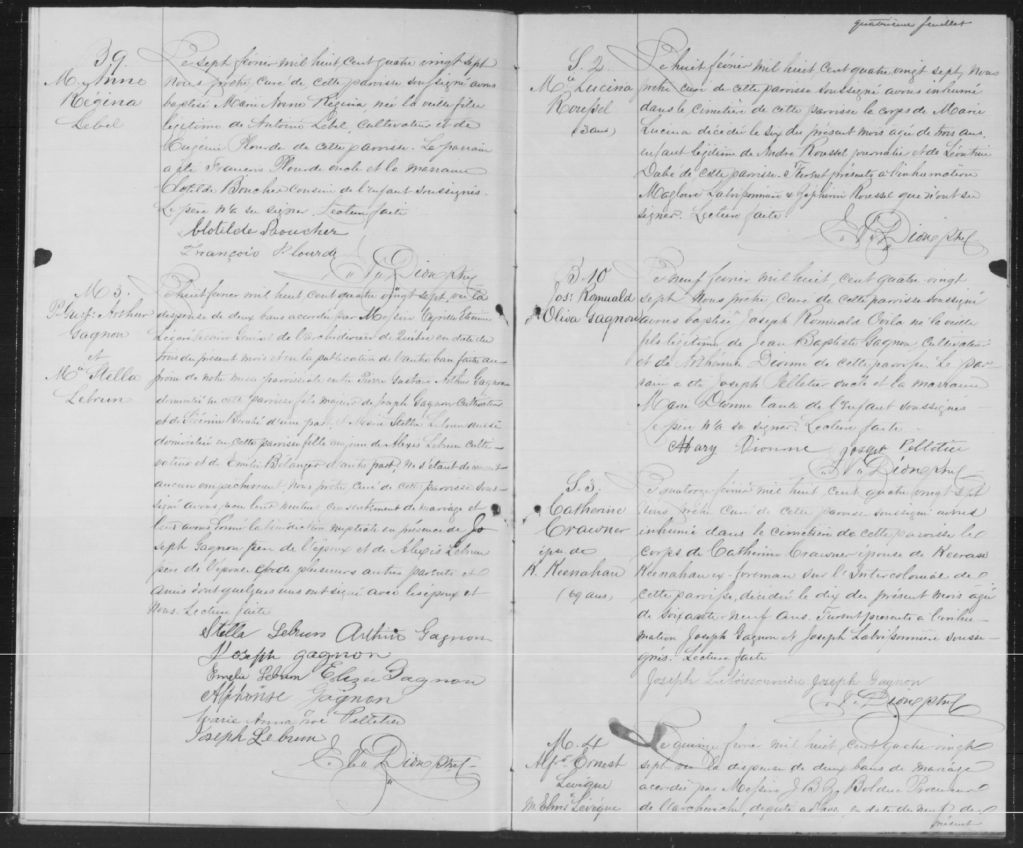 B 9.
M. Anne
Régina
Lebel
Le sept février mil huit cent quatre vingt sept
nous prêtre, curé de cette paroisse soussigné avons
baptisé Marie Anne Régina née la veille fille
légitime de Antoine Lebel, cultivateur et de
Eugénie Plourde de cette paroisse. Le parrain
a été François Plourde oncle et la marraine
Clotilde Boucher cousine de l'enfant soussignés.
Le père n'a su signer. Lecture faite
Clotilde Boucher
François Plourde
Dion Ptre
M 3.
Arthur
Gagnon
et
Mie Stella
Lebrun
Le huit février mil huit cent quatre vingt sept, vu la
dispense de deux bans accordée par Cyrille Etienne
Légaré Vicaire Général de l'archidiocèse de Québec en date du
trois du présent mois et vu la publication de l'autre ban faite au
prône de notre messe paroissiale entre Pierre Gustave Arthur Gagnon
domicilié en cette paroisse fils majeur de Joseph Gagnon cultivateur
et de d'une part, & Marie Stella Lebrun aussi
domiciliée en cette paroisse fille majeure de Alexis Lebrun culti-
vateur et de Emélie Bélanger d'autre part, Ne s'étant découvert
aucun empêchement, Nous prêtre curé de cette paroisse sous-
signé avons reçu leur mutuel consentement de mariage et
leur avons donné la bénédiction nuptiale en présence de Jo
seph Gagnon père de l'époux et de Alexis Lebrun
père de l'épouse et de plusieurs autres parents et
amis dont quelques uns ont signé avec les époux et
Nous. Lecture faite
Stella Lebrun Arthur Gagnon
Joseph gagnon
Emélie Lebrun Elizée Gagnon
Alphonse Gagnon
Marie Anna Pelletier
Joseph Lebrun
Dion Ptre
quatrième feuillet
S. 2
Mie Lucina
Roussel
(3 ans)
Le huit février mil huit cent quatre vingt sept, Nous
prêtre curé de cette paroisse soussigné avons inhumé
dans le cimetière de cette paroisse le corps de Marie
Lucina décédée le six du présent mois agée de trois ans,
enfant légitime de André Roussel journalier et de Léontine
Dubé de cette paroisse. Furent présents à l'inhumation
Magloire Laboissonnière & Zéphirin Roussel qui n'ont su
signer. Lecture faite
Dion Ptre
B. 10
Jos. Romuald
Oliva Gagnon
Le neuf février mil huit cent quatre vingt
sept Nous prêtre, Curé de cette paroisse soussigné
avons baptisé Joseph Romuald né la veille
fils légitime de Jean Baptiste Gagnon Cultivateur
et de Dionne de cette paroisse Le par-
rain a été Joseph Pelletier oncle et la marraine
Marie Dionne tante de l'Enfant soussignés
Le père n'a su signer. Lecture faite.
Mary Dionne Joseph Pelletier
Dion Ptre
S. 3.
Catherine
Crawner
épse de
K. Keenahan
(69 ans)
Le quatorze février mil huit cent quatre vingt sept
Nous prêtre curé de cette paroisse soussigné avons
inhumé dans le cimetière de cette paroisse le
corps de Catherine Crawner épouse de
Keenahan ex-foreman sur l'Intercolonial de
cette paroisse, décédée le dix du présent mois agée
de soixante-neuf ans. Furent présents à l'inhu-
mation Joseph Gagnon et Joseph Laboissonnière sous-si
gnés. Lecture faite
Joseph Laboissonnière Joseph Gagnon
Dion Ptre
M. 4
Ernest
Levêque
& M. Levêque
Le quinze février mil huit cent quatre vingt
sept vu la dispense de deux bans de mariage
accordée par Bolduc Procureur
de l'archevêché, député en date du neuf de
présent